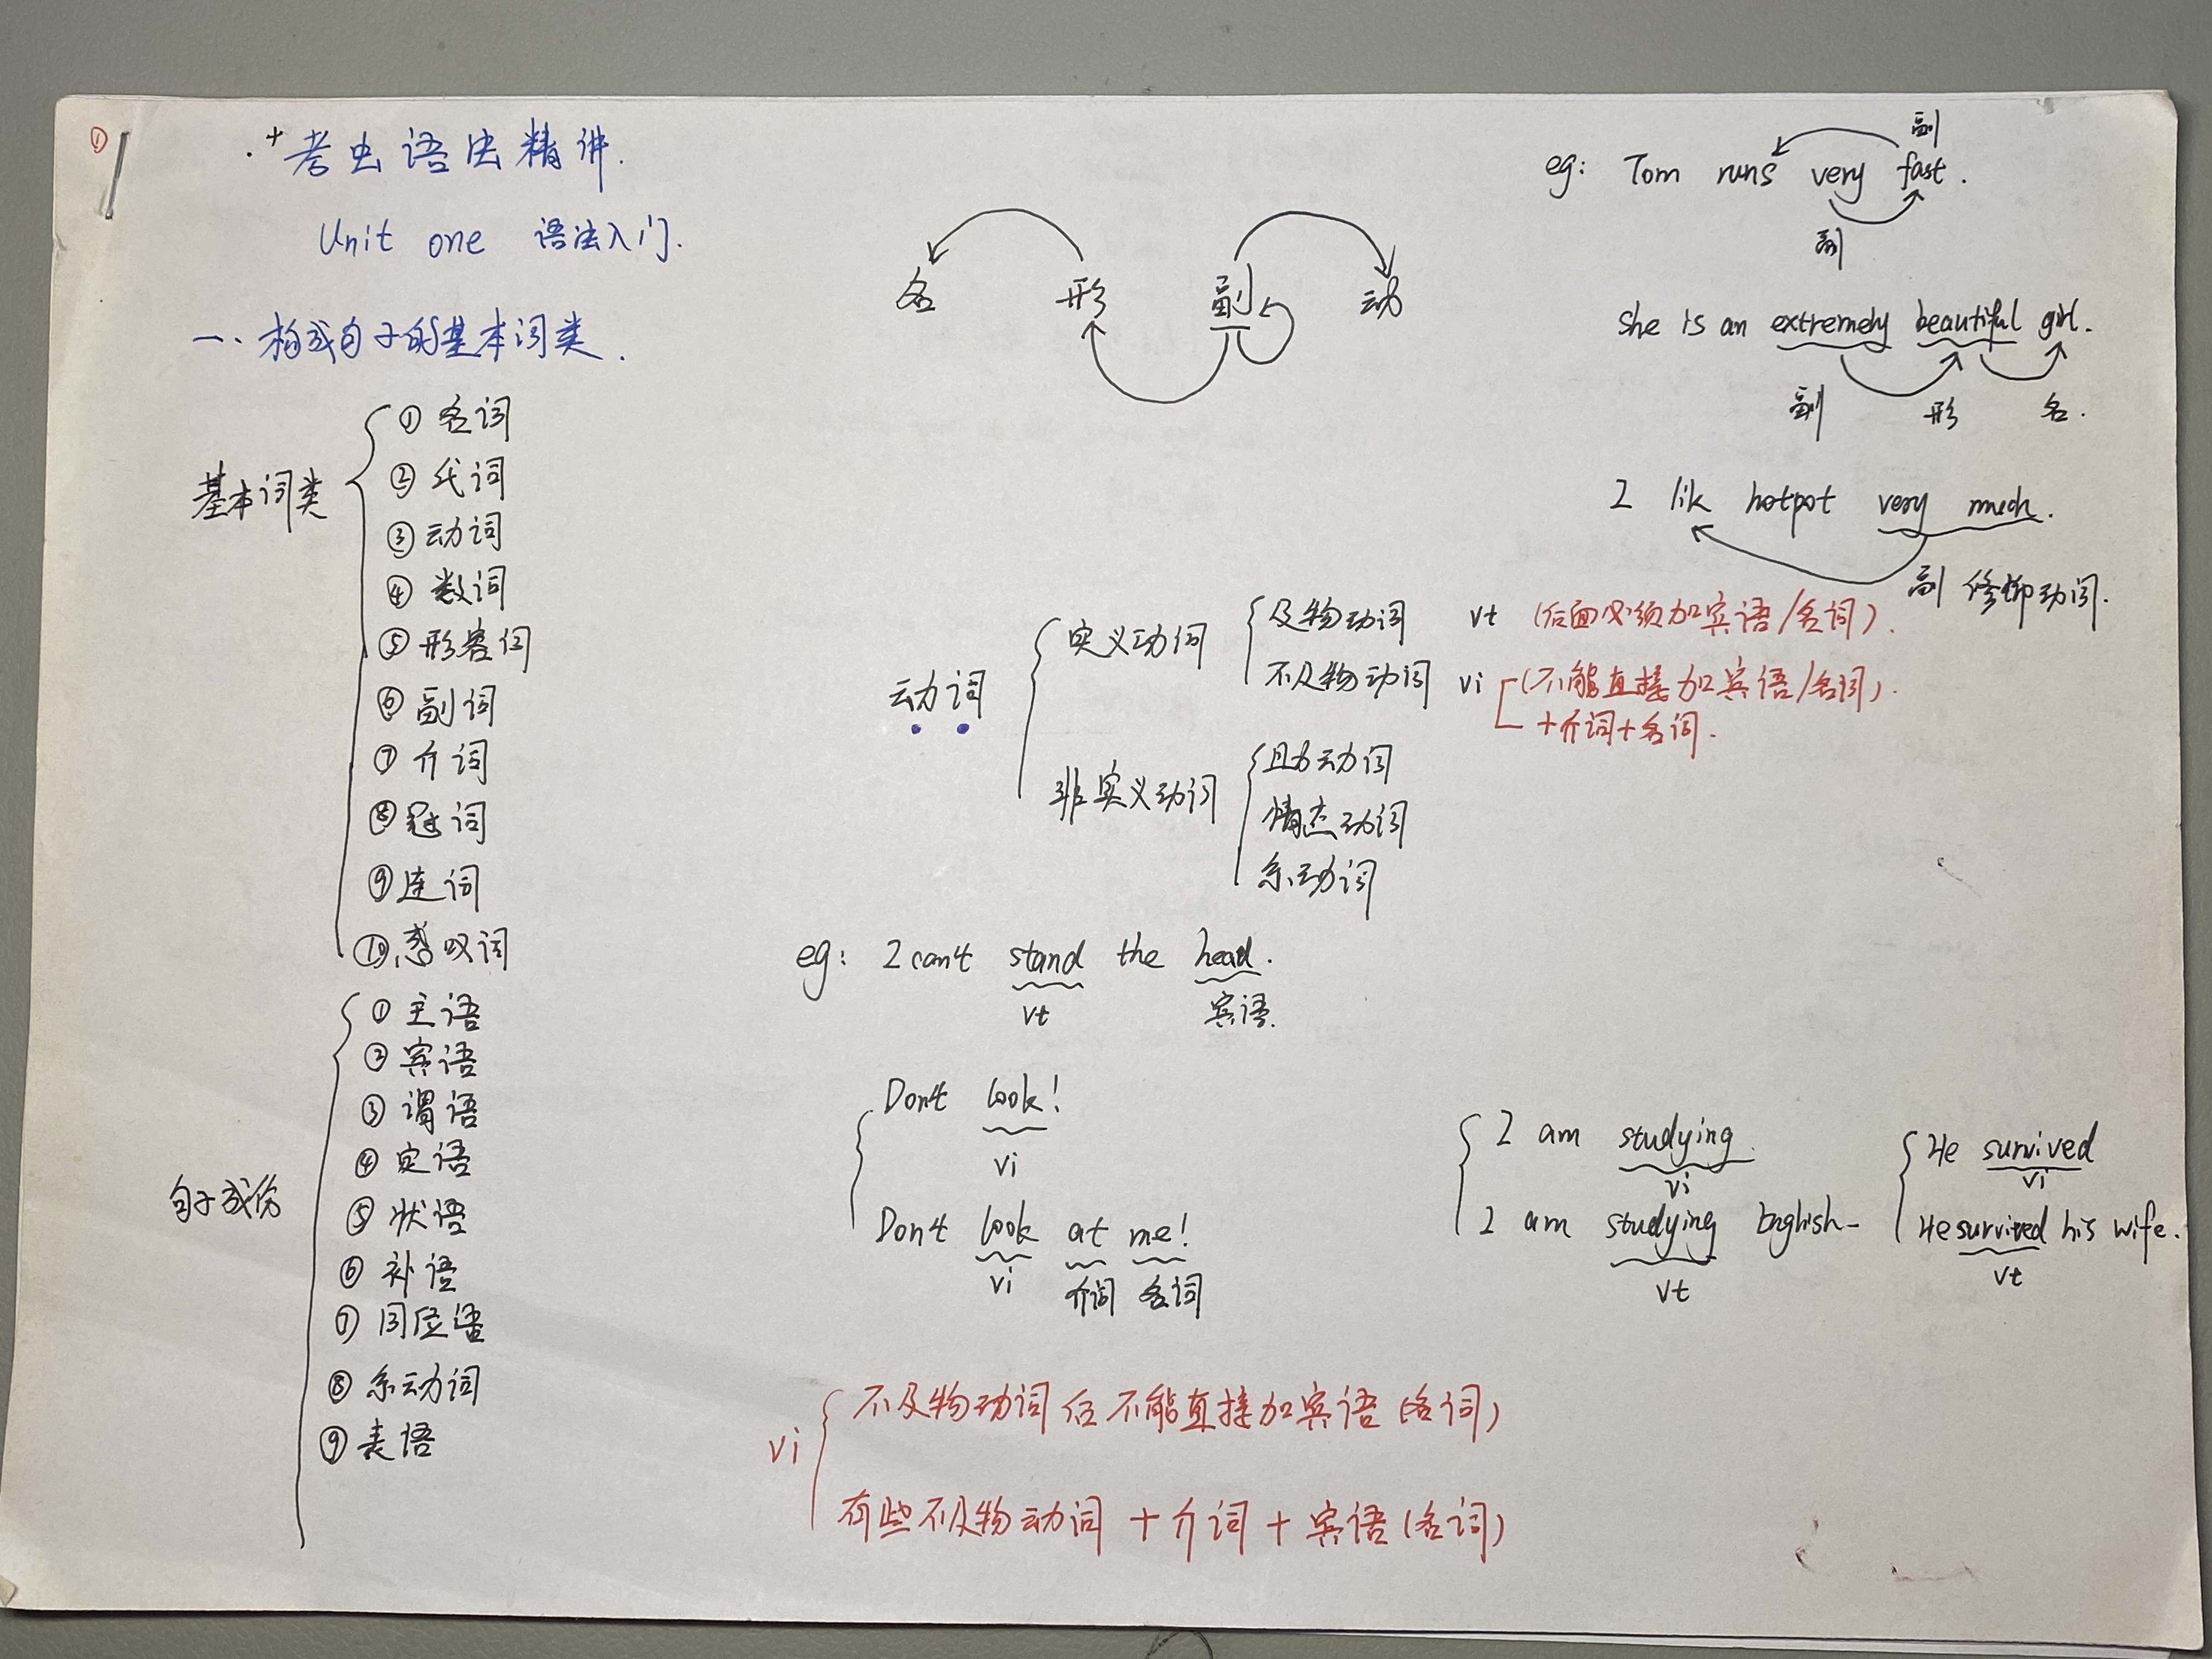 ①
考虫语法精讲.
Unit one 语法入门.
一、构成句子的基本词类.
基本词类
① 名词
② 代词
③ 动词
④ 数词
⑤ 形容词
⑥ 副词
⑦ 介词
⑧ 冠词
⑨ 连词
⑩ 感叹词
句子成份
① 主语
② 宾语
③ 谓语
④ 定语
⑤ 状语
⑥ 补语
⑦ 同位语
⑧ 系动词
⑨ 表语
名 形 副 动
副
eg: Tom runs very fast.
副
she is an extremely beautiful girl.
副 形 名.
I lik hotpot very much.
副 修饰动词.
动词
实义动词
及物动词 vt (后面必须加宾语/名词).
不及物动词 vi (不能直接加宾语/名词).
+介词+名词.
非实义动词
助动词
情态动词
系动词
eg: I can't stand the head.
vt 宾语.
Don't look!
vi
Don't look at me!
vi 介词 名词
I am studying.
vi
I am studying English.
vt
He survived
vi
He survived his wife.
vt
vi
不及物动词后不能直接加宾语(名词)
有些不及物动词 + 介词 + 宾语(名词)